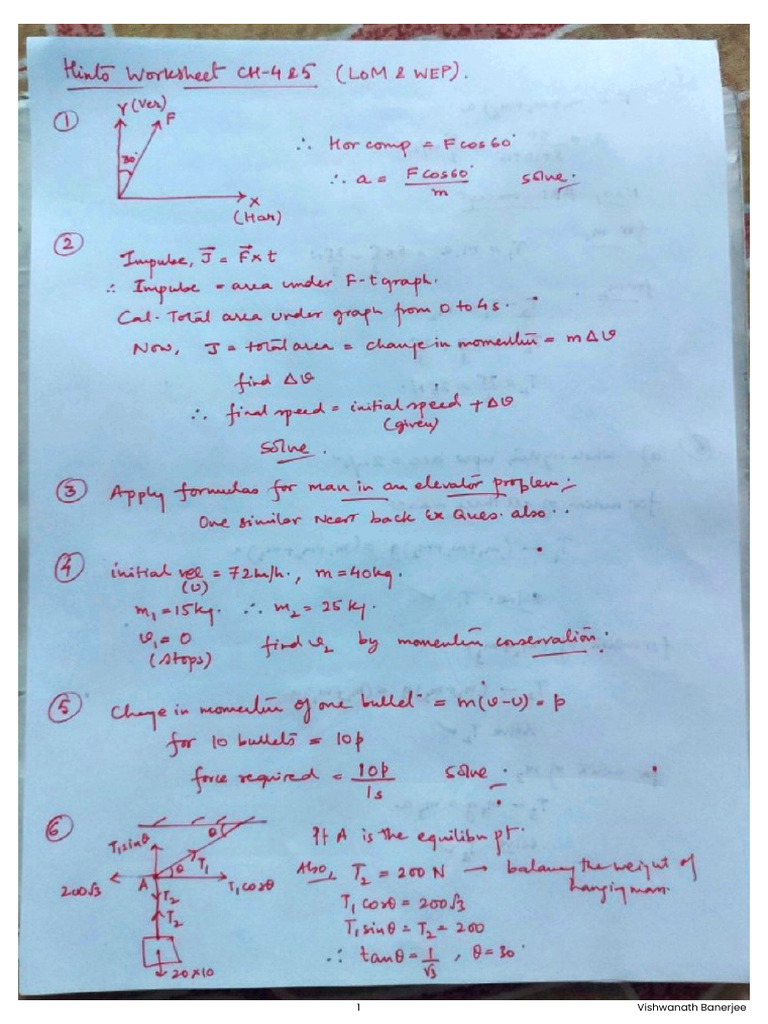 Hints Worksheet CH-4&5 (LOM & WEP).
①
Y(Ver)
F
30°
X
(Hor)
∴ Hor comp = Fcos60°
∴ a = Fcos60°/m solve.
②
Impulse, J⃗ = F⃗ x t
∴ Impulse = area under F-t graph.
Cal. Total area under graph from 0 to 4s.
Now, J = total area = change in momentum = mΔv
find Δv
∴ final speed = initial speed + Δv
(given)
solve.
③ Apply formulas for man in an elevator problem;
One similar Ncert back Ex Ques. also.
④ initial vel = 72km/h., m = 40kg.
(U)
m₁ = 15kg. ∴ m₂ = 25kg.
v₁ = 0 find v₂ by momentum conservation.
(stops)
⑤ Change in momentum of one bullet = m(v-u) = p
for 10 bullets = 10p
force required = 10p/1s solve.
⑥
T₁sinθ
θ
T₁
θ
200√3
A
T₁cosθ
T₂
T₂
20x10
If A is the equilibm pt.
Also, T₂ = 200 N → balancing the weight of
hanging mass.
T₁cosθ = 200√3
T₁sinθ = T₂ = 200
∴ tanθ = 1/√3, θ = 30°
1
Vishwanath Banerjee